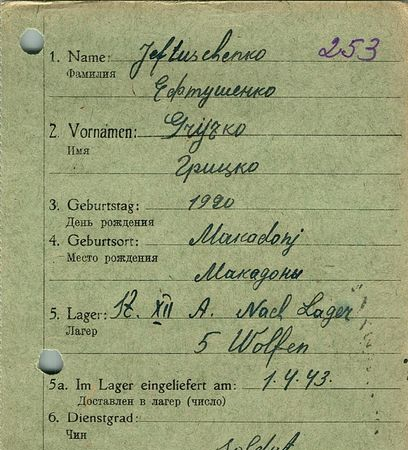 253
1. Name: Jeftuschenko
Фамилия
Ефтушенко
2. Vornamen: Grizko
Имя
Грицко
3. Geburtstag: 1920
День рождения
4. Geburtsort: Makadonj
Место рождения
Макадоны
5. Lager: XII A. Nach Lager
Лагер
5 Wolfen
5a. Im Lager eingeliefert am: 1.4.43.
Доставлен в лагер (число)
6. Dienstgrad:
Чин
Soldat